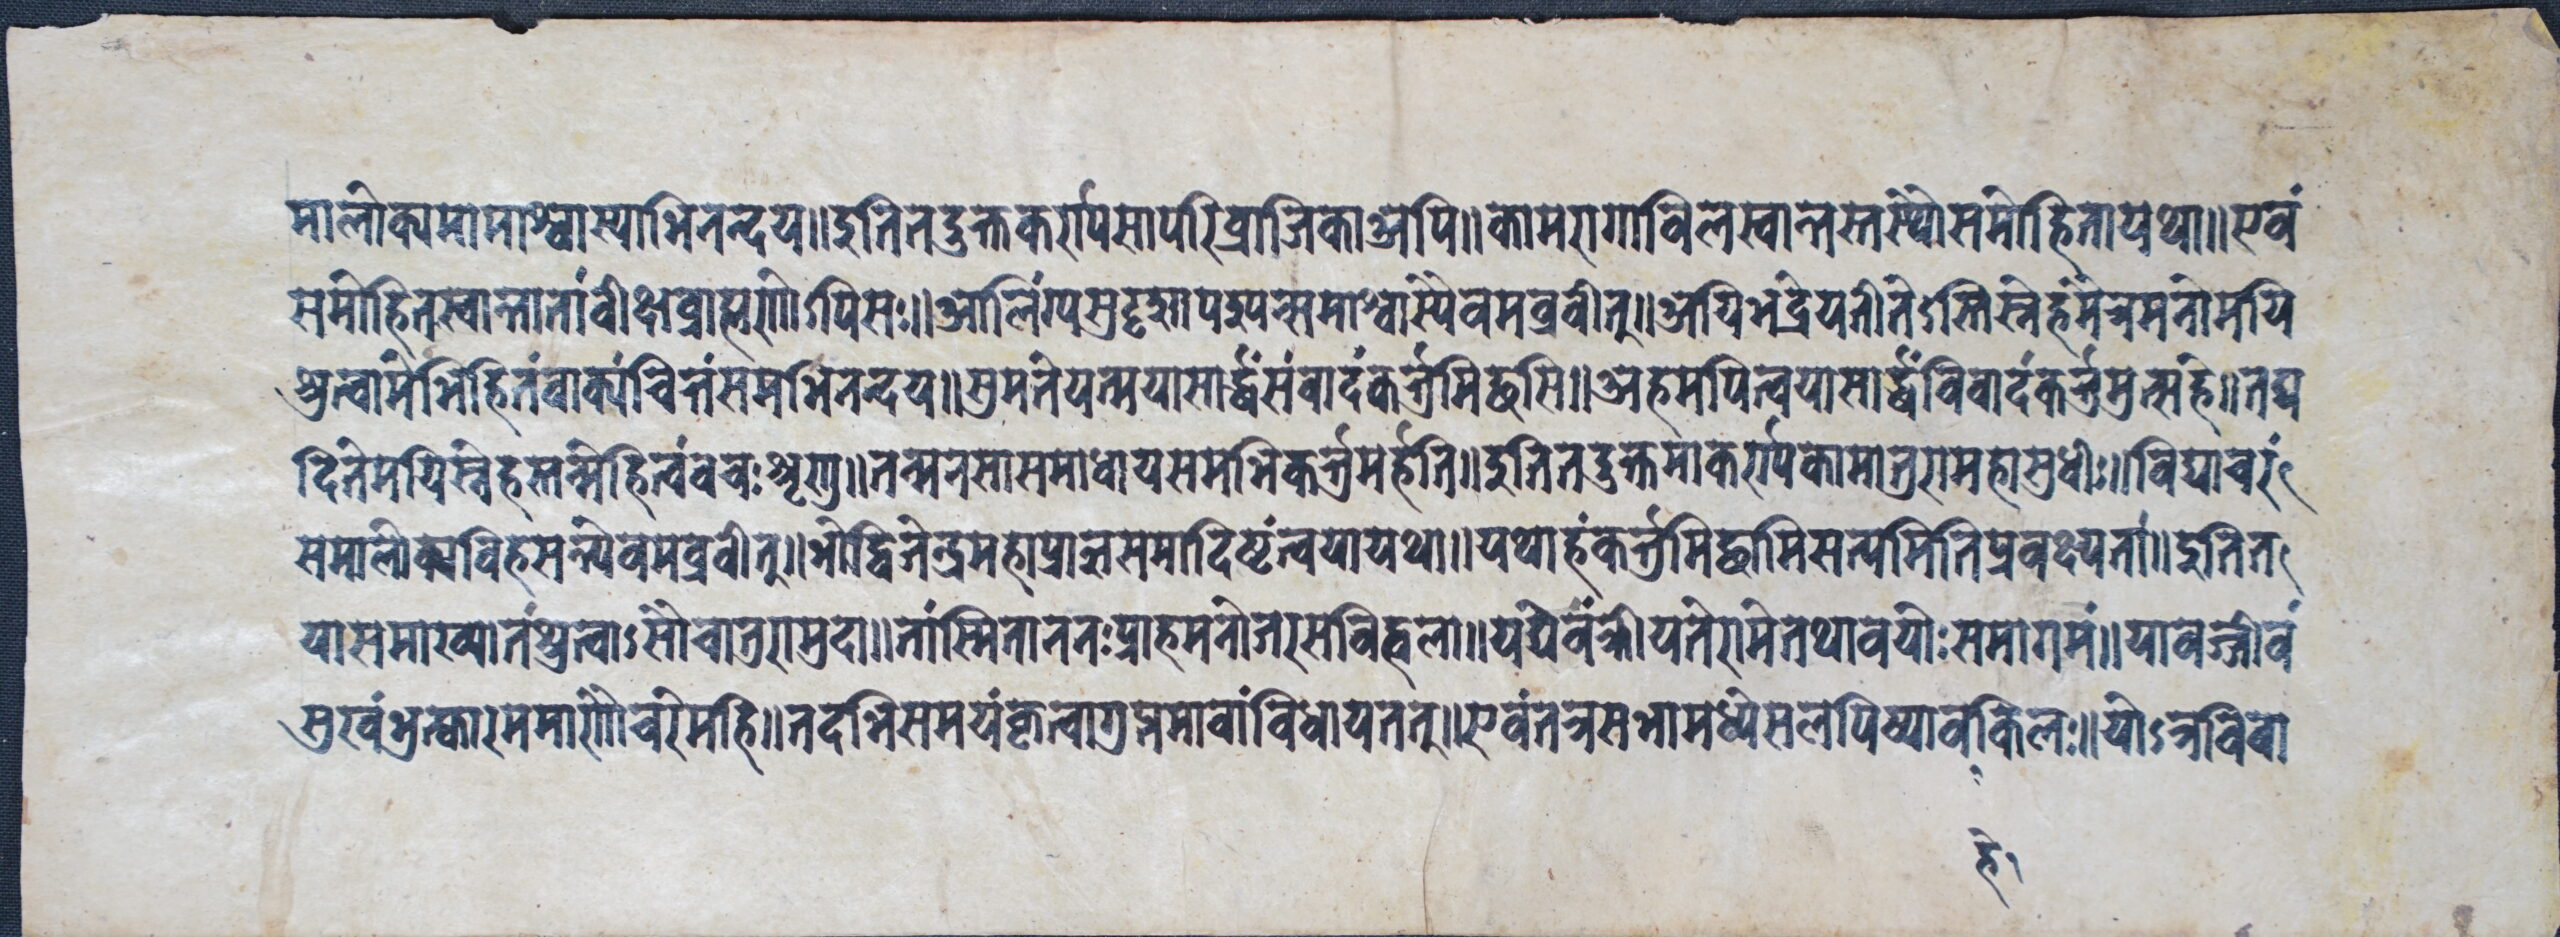 मालोक्यमामाश्वास्याभिनन्दय॥इतितदुक्तकर्ण्यसापरिव्राजिकाअपि॥कामरागाविलस्वान्तस्तस्थौसंमोहितायथा॥एवं
संमोहितस्वान्तातांवीक्षब्राह्मणोऽपिसः॥आलिंग्यसुदृशापश्यन्समाश्वास्यैवमब्रवीत्॥अयिभद्रेयतोतेऽस्तिस्नेहमत्रमनोमयि
श्रुत्वामेभिहितंवाक्यंचित्तंसमभिनन्दय॥सुमतेयन्मयासार्द्धंसंवादंकर्त्तुमिछसि॥अहमपित्वयासार्द्धंविवादंकर्त्तुमुत्सहे॥तद्य
दितेमयिस्नेहस्तन्मेहित्वंवचःशृणु॥तन्मनसासमाधायसमभिकर्त्तुमर्हति॥इतितदुक्तमाकर्ण्यकामातुरामहासुधीः॥विद्याचरं
समालोक्यविहसन्त्येवमब्रवीत्॥भोद्विजेन्द्रमहाप्राज्ञसमादिष्टंत्वयायथा॥यथाहंकर्त्तुमिछामिसत्यमितिप्रवक्ष्यतां॥इतित
यासमाख्यातंश्रुत्वाऽसौचातुरामुदा॥तांस्मिताननःप्राहमनोजरसविह्वला॥यद्येवंक्रीयतेरामेतथावयोःसमागमं॥यावज्जीवं
सुखंभुत्क्वारममाणौचरेमहि॥तदभिसमयंकृत्वागुप्तमावांविधायतत्॥एवंतत्रसभामध्येसलपिष्यावकिलः॥योऽत्रविवा
हे